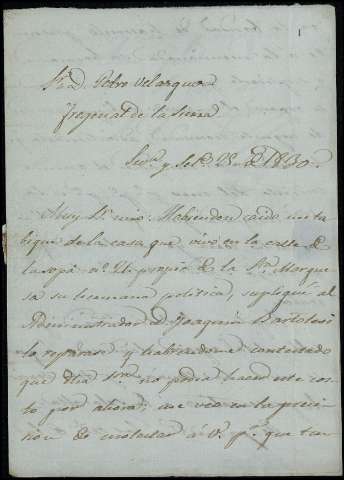 1
Sr. d. Pedro Velazquez
Fregenal de la Sierra
Seva. y Set. 25 de 1830.
Muy Sr. mio: Habiendose caido un ta
bique de la casa que vivo en la calle de
la propia de la Sra. Marque
sa su hermana política, supliqué al
Administrador d. Joaquin Bartolosi
lo reparase y habiendome contestado
que dha. Sra. no podia hacer este cos
to por ahora, me veo en la preci
sion de molestar á V. pa. que tan